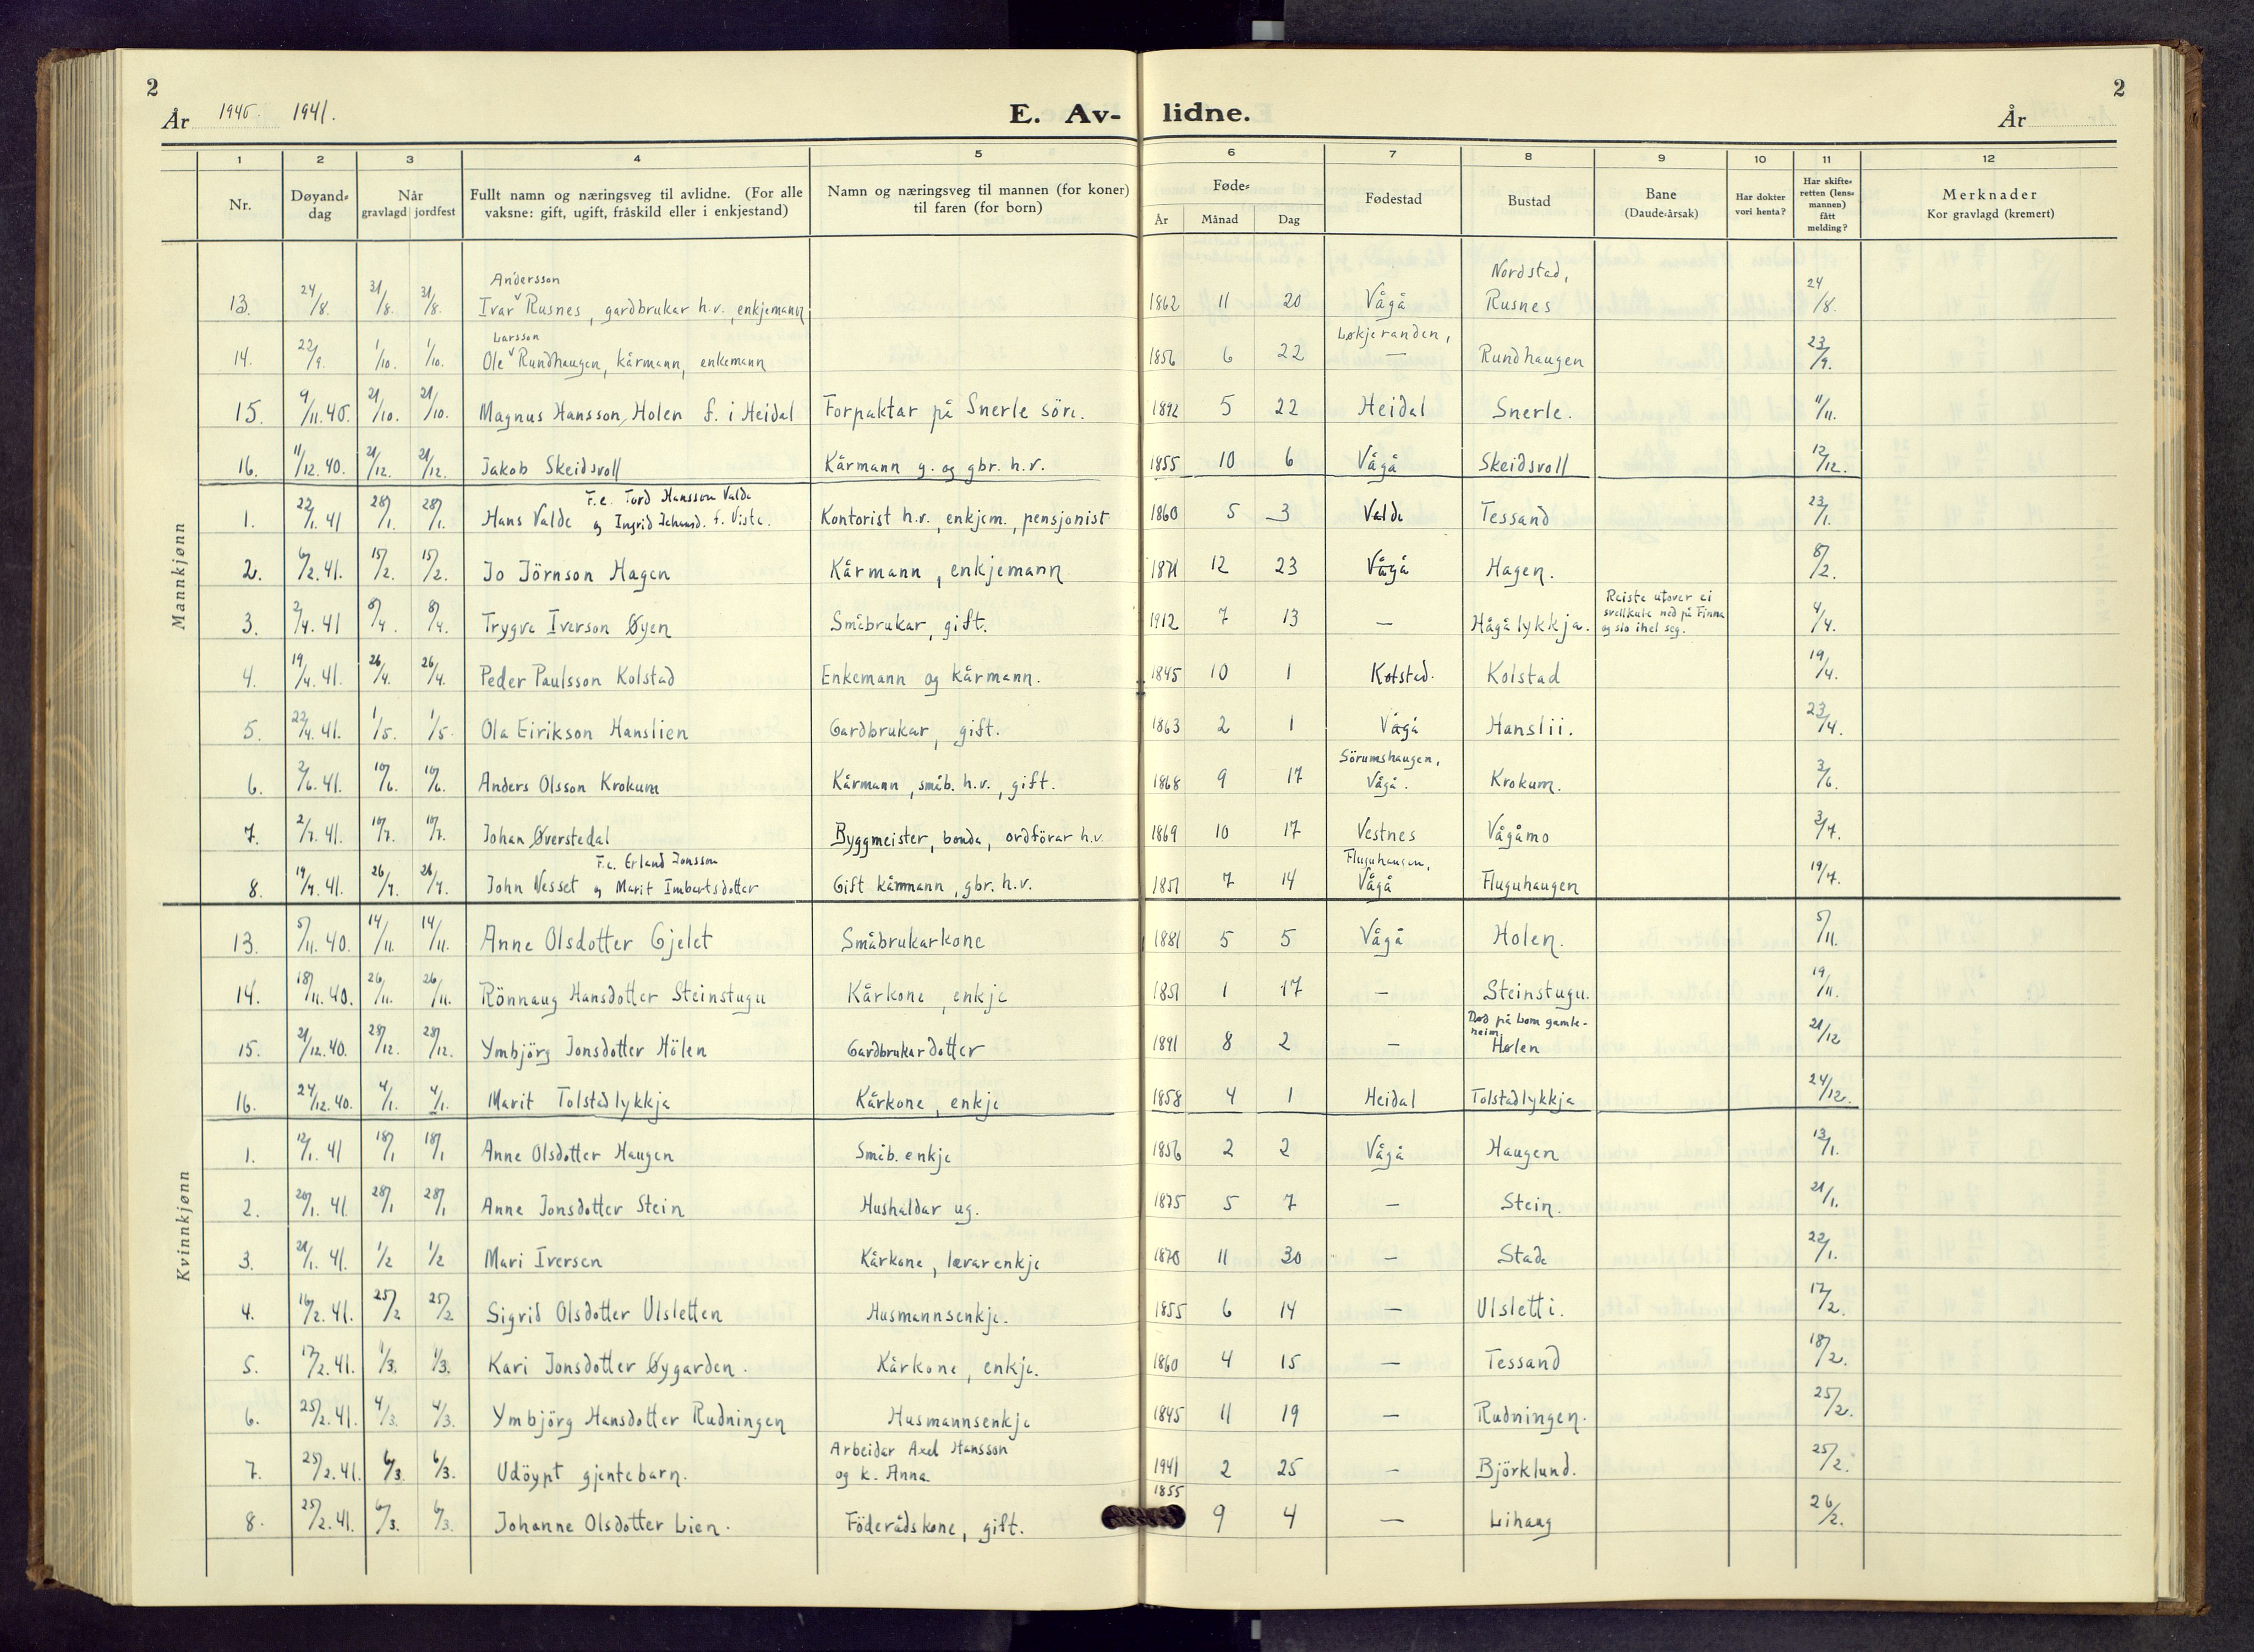 2
2
År 1940. 1941.
E. Av-
lidne.
År
1 2 3 4 5 6 7 8 9 10 11 12
Nr.
Døyand-dag
Når
gravlagd jordfest
Fullt namn og næringsveg til avlidne. (For alle
vaksne: gift, ugift, fråskild eller i enkjestand)
Namn og næringsveg til mannen (for koner)
til faren (for born)
Føde-
År Månad Dag
Fødestad
Bustad
Bane
(Daude-årsak)
Har dokter
vori henta?
Har skifte-
retten (lens-
mannen)
fått
melding?
Merknader
Kor gravlagd (kremert)
Mannkjønn
Andersson Nordstad,
13. 24/8. 31/8. 31/8. Ivar v Rusnes, gardbrukar h.v., enkjemann 1862 11 20 Vågå Rusnes 24/8.
Larsson Løkjeranden,
14. 22/9. 1/10. 1/10. Ole v Rundhaugen, kårmann, enkemann 1856 6 22 — Rundhaugen 23/9.
15. 9/11.40. 21/10. 21/10. Magnus Hansson Holen f. i Heidal Forpaktar på Snerle söre. 1892 5 22 Heidal Snerle. 11/11.
16. 11/12.40. 21/12. 21/12. Jakob Skeidsvoll Kårmann g. og gbr. h.v. 1855 10 6 Vågå Skeidsvoll 12/12.
F.e. Tord Hansson Valde
1. 22/1.41 28/1. 28/1. Hans Valde og Ingrid f. Viste. Kontorist h.v., enkjem., pensjonist 1860 5 3 Valde Tessand 23/1.
2. 6/2.41. 15/2. 15/2. Jo Jörnson Hagen Kårmann, enkjemann 1871 12 23 Vågå Hagen. 8/2.
Reiste utover ei
svellkule ned på Finna
og slo ihel seg.
3. 2/4.41 8/4. 8/4. Trygve Iverson Øyen Småbrukar, gift. 1912 7 13 — Hågålykkja. 4/4.
4. 19/4.41. 26/4. 26/4. Peder Paulsson Kolstad Enkemann og kårmann. 1845 10 1 Kolstad. Kolstad 19/4.
5. 22/4.41. 1/5. 1/5. Ola Eirikson Hanslien Gardbrukar, gift. 1863 2 1 Vågå Hanslii. 23/4.
Sörumshaugen,
6. 2/6.41. 10/6. 10/6. Anders Olsson Krokum Kårmann, småb. h.v., gift. 1868 9 17 Vågå. Krokum. 3/6.
7. 2/7.41. 10/7. 10/7. Johan Øverstedal Byggmeister, bonde, ordförar h.v. 1869 10 17 Vestnes Vågåmo 3/7.
F.e. Erland Jonsson Fluguhaugen,
8. 19/7.41. 26/7. 26/7. John Nesset og Marit Imbertsdotter Gift kårmann, gbr. h.v. 1851 7 14 Vågå Fluguhaugen 19/7.
Kvinnkjønn
13. 5/11.40. 14/11. 14/11. Anne Olsdotter Gjelet Småbrukarkone 1881 5 5 Vågå Holen. 5/11.
14. 18/11.40. 26/11. 26/11. Rönnaug Hansdotter Steinstugu Kårkone, enkje 1851 1 17 — Steinstugu. 19/11.
Død på Lom gamle-
heim.
15. 21/12.40. 28/12. 28/12. Ymbjörg Jonsdotter Hölen Gardbrukardotter 1891 8 2 — Hølen 21/12
16. 24/12.40. 4/1. 4/1. Marit Tolstadlykkje Kårkone, enkje 1858 4 1 Heidal Tolstadlykkje 24/12.
1. 12/1.41 18/1 18/1 Anne Olsdotter Haugen Småb. enkje 1856 2 2 Vågå Haugen 13/1.
2. 20/1.41. 28/1 28/1 Anne Jonsdotter Stein Husheldar ug. 1875 5 7 — Stein. 21/1.
3. 21/1.41. 1/2 1/2 Mari Iversen Kårkone, lærarenkje 1870 11 30 — Stade 22/1.
4. 16/2.41. 25/2 25/2 Sigrid Olsdotter Ulsletten Husmannsenkje. 1855 6 14 — Ulsletti. 17/2.
5. 17/2.41. 1/3. 1/3. Kari Jonsdotter Øygarden. Kårkone, enkje. 1860 4 15 — Tessand 18/2.
6. 25/2.41. 4/3. 4/3. Ymbjörg Hansdotter Rudningen Husmannsenkje 1845 11 19 — Rudningen. 25/2.
Arbeidar Axel Hansson
7. 25/2.41. 6/3. 6/3. Udöypt gjentebarn. og k. Anna 1941 2 25 — Björklund. 25/2.
1855
8. 25/2.41. 6/3. 6/3. Johanne Olsdotter Lien. Föderådskone, gift. 9 4 — Lihaug 26/2.